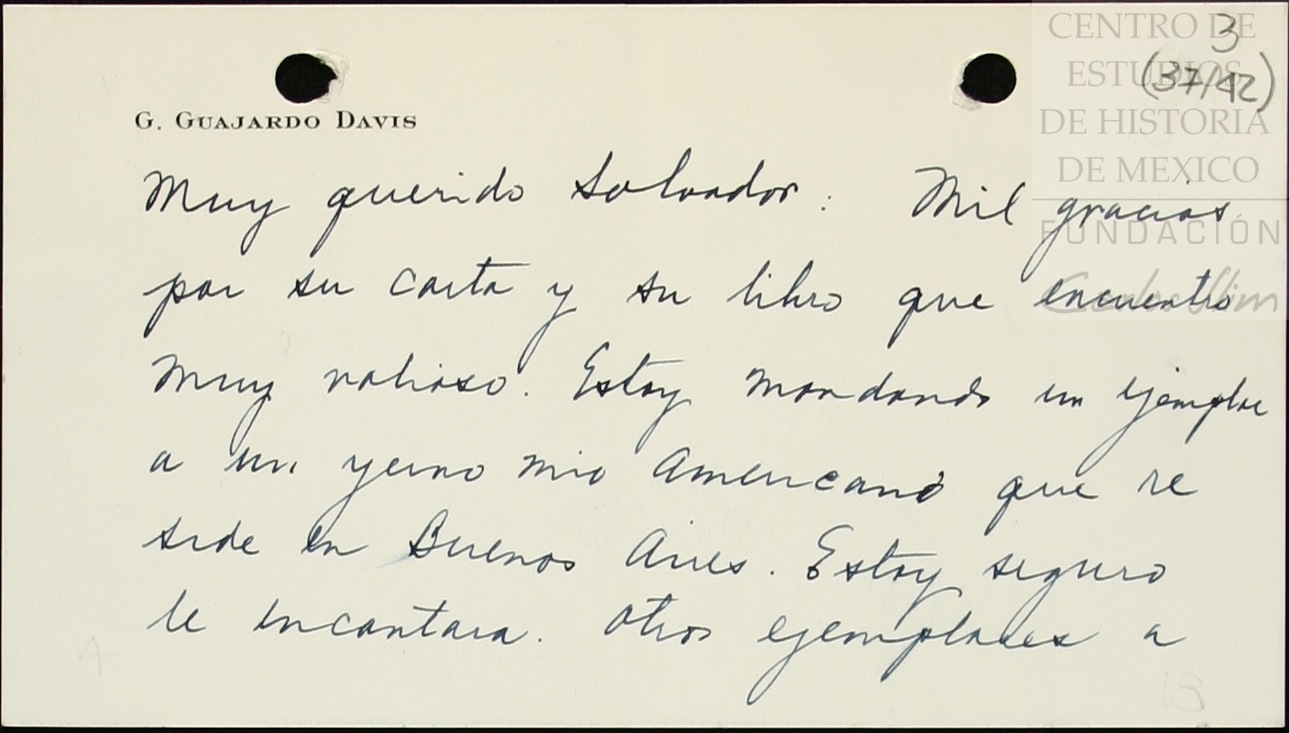 CENTRO DE
ESTUDIOS
DE HISTORIA
DE MEXICO
FUNDACIÓN
Carlos Slim
3
(37/42)
G. GUAJARDO DAVIS
Muy querido Salvador: Mil gracias
por su carta y su libro que encuentro
muy valioso. Estoy mandando un ejemplar
a un yerno mio Americano que re
side en Buenos Aires. Estoy seguro
le encantara. Otros ejemplares a